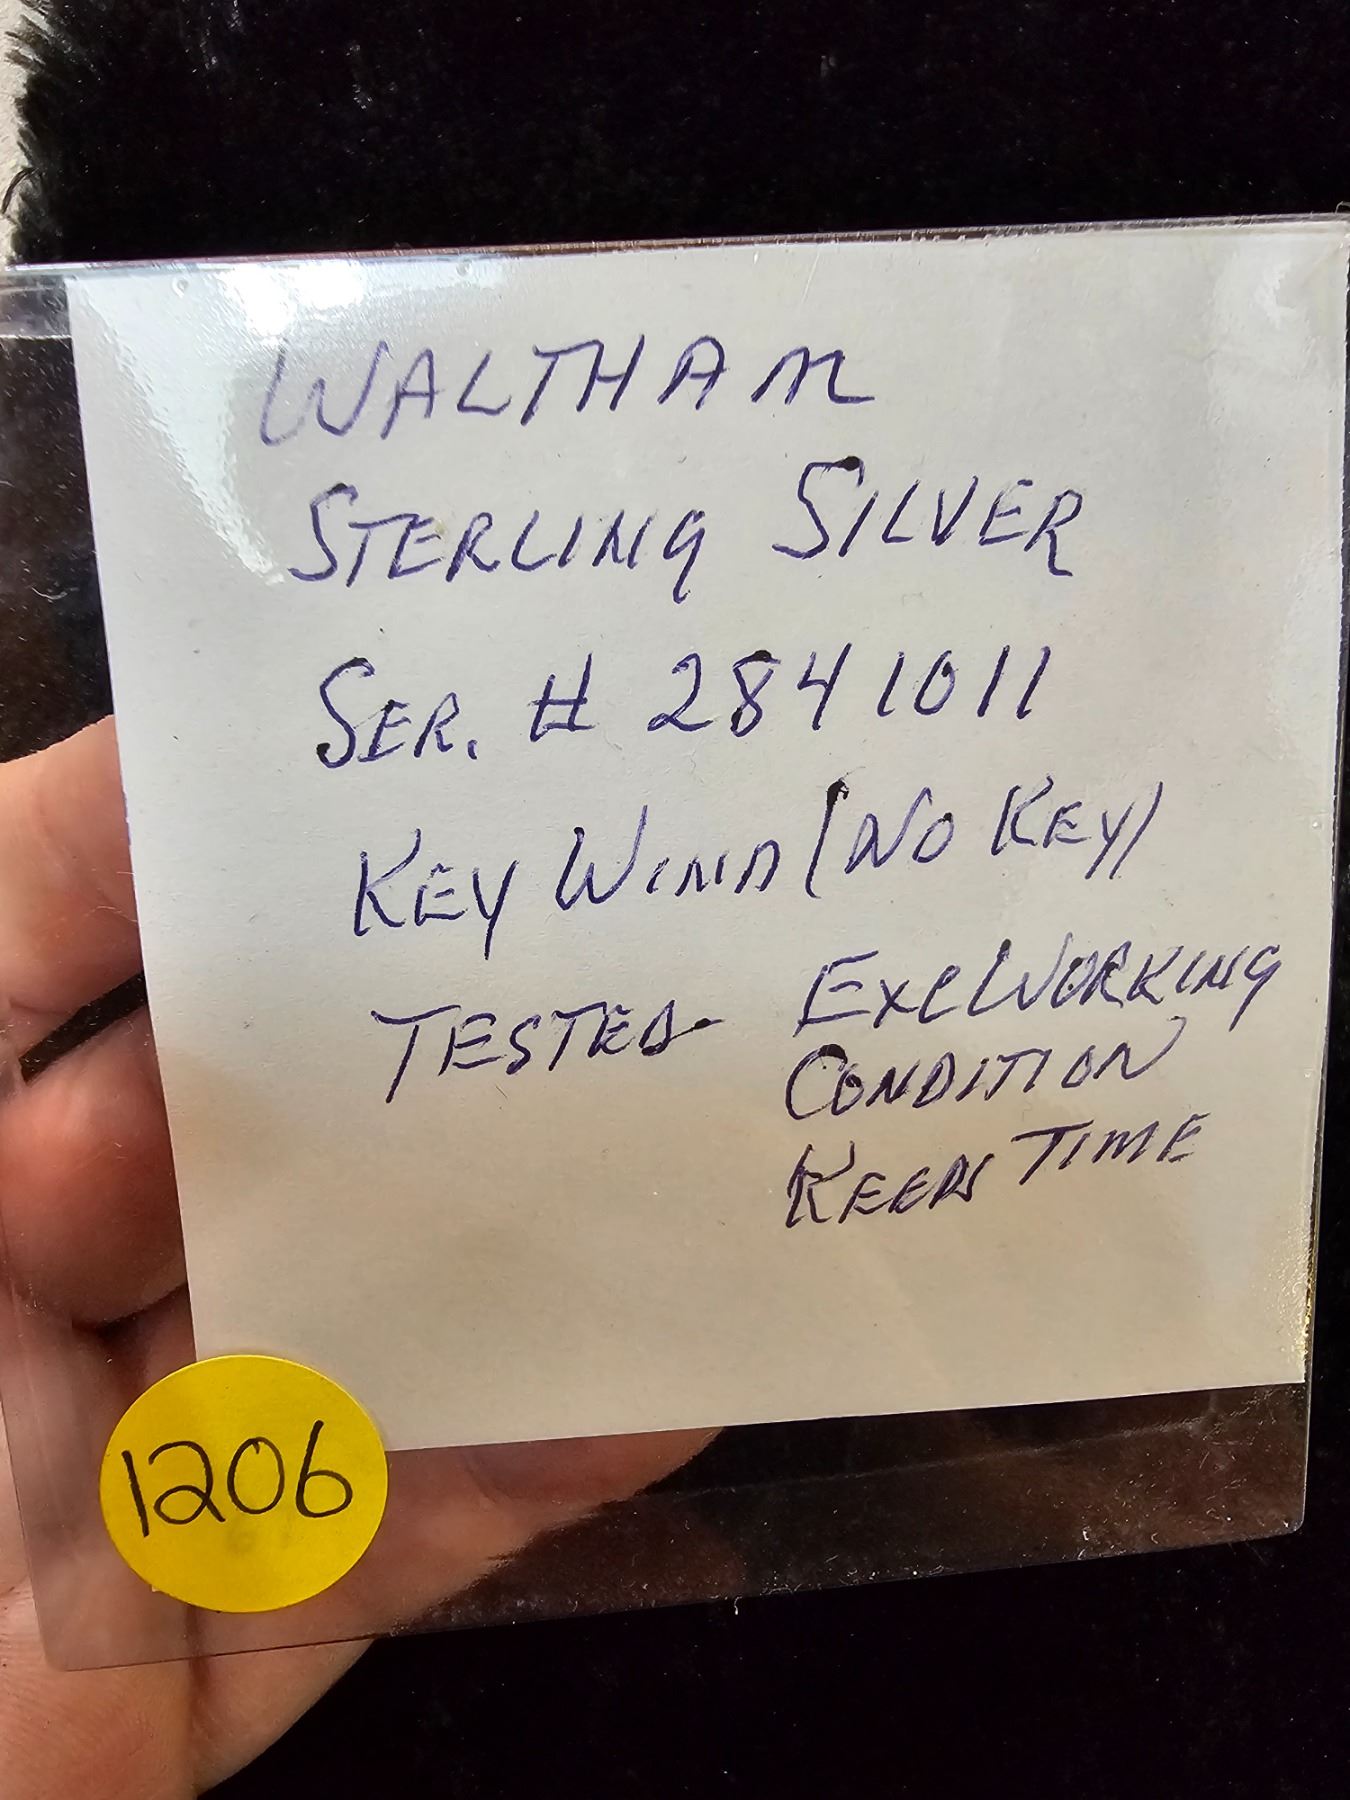 WALTHAM
STERLING SILVER
SER. # 2841011
KEY WIND (NO KEY)
TESTED- EXC WORKING
CONDITION
KEEPS TIME
1206